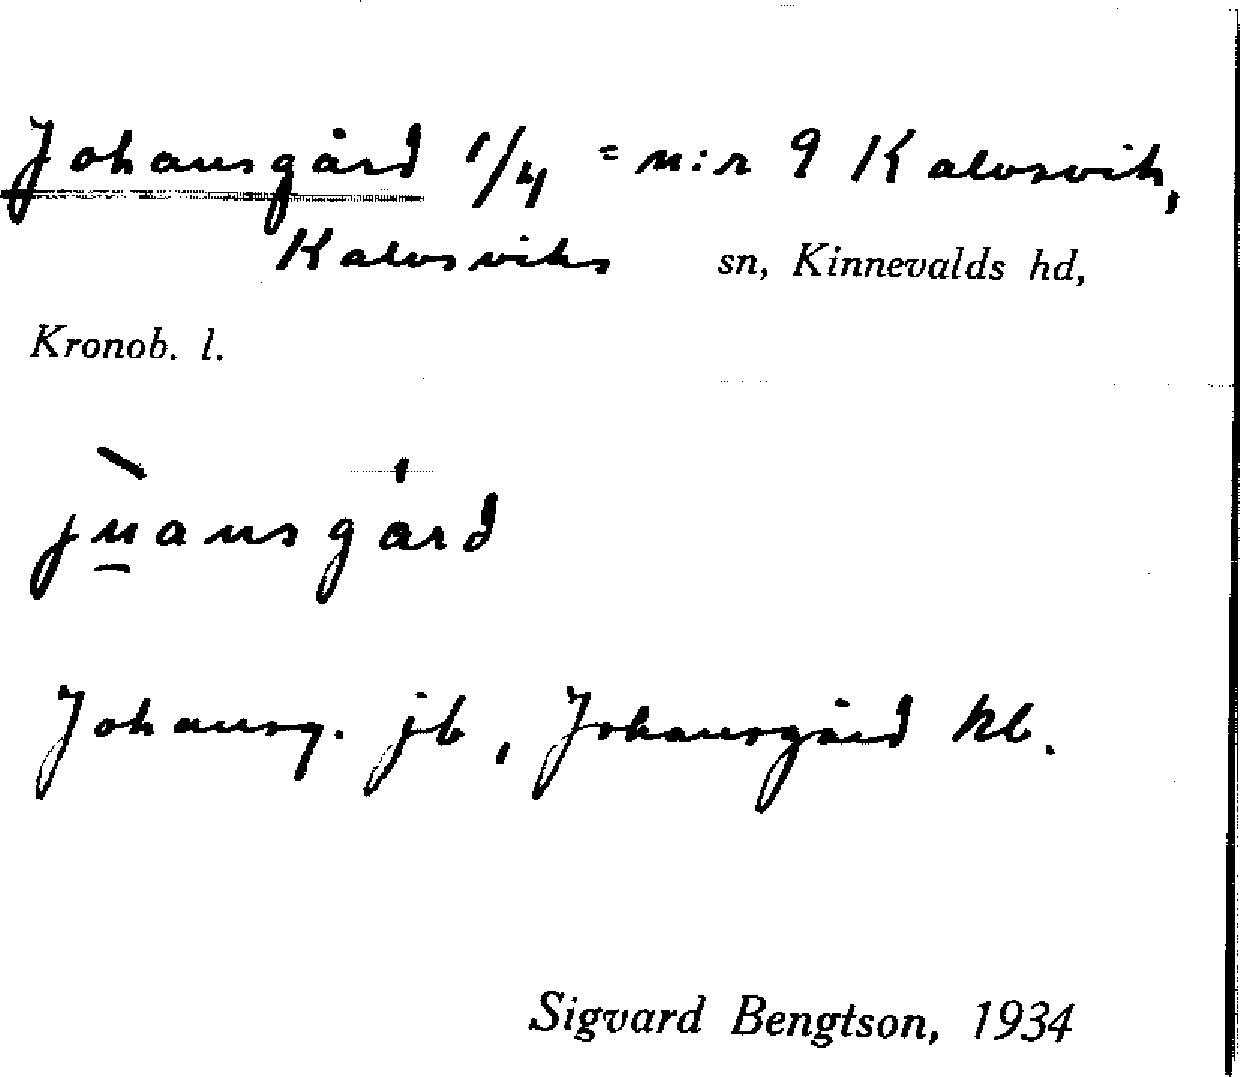 Johansgård 1/4 = n:r 9 Kalvsvik,
Kalvsviks sn, Kinnevalds hd,
Kronob. l.
jùansgárd
Johansg. jb, Johansgård kb.
Sigvard Bengtson, 1934